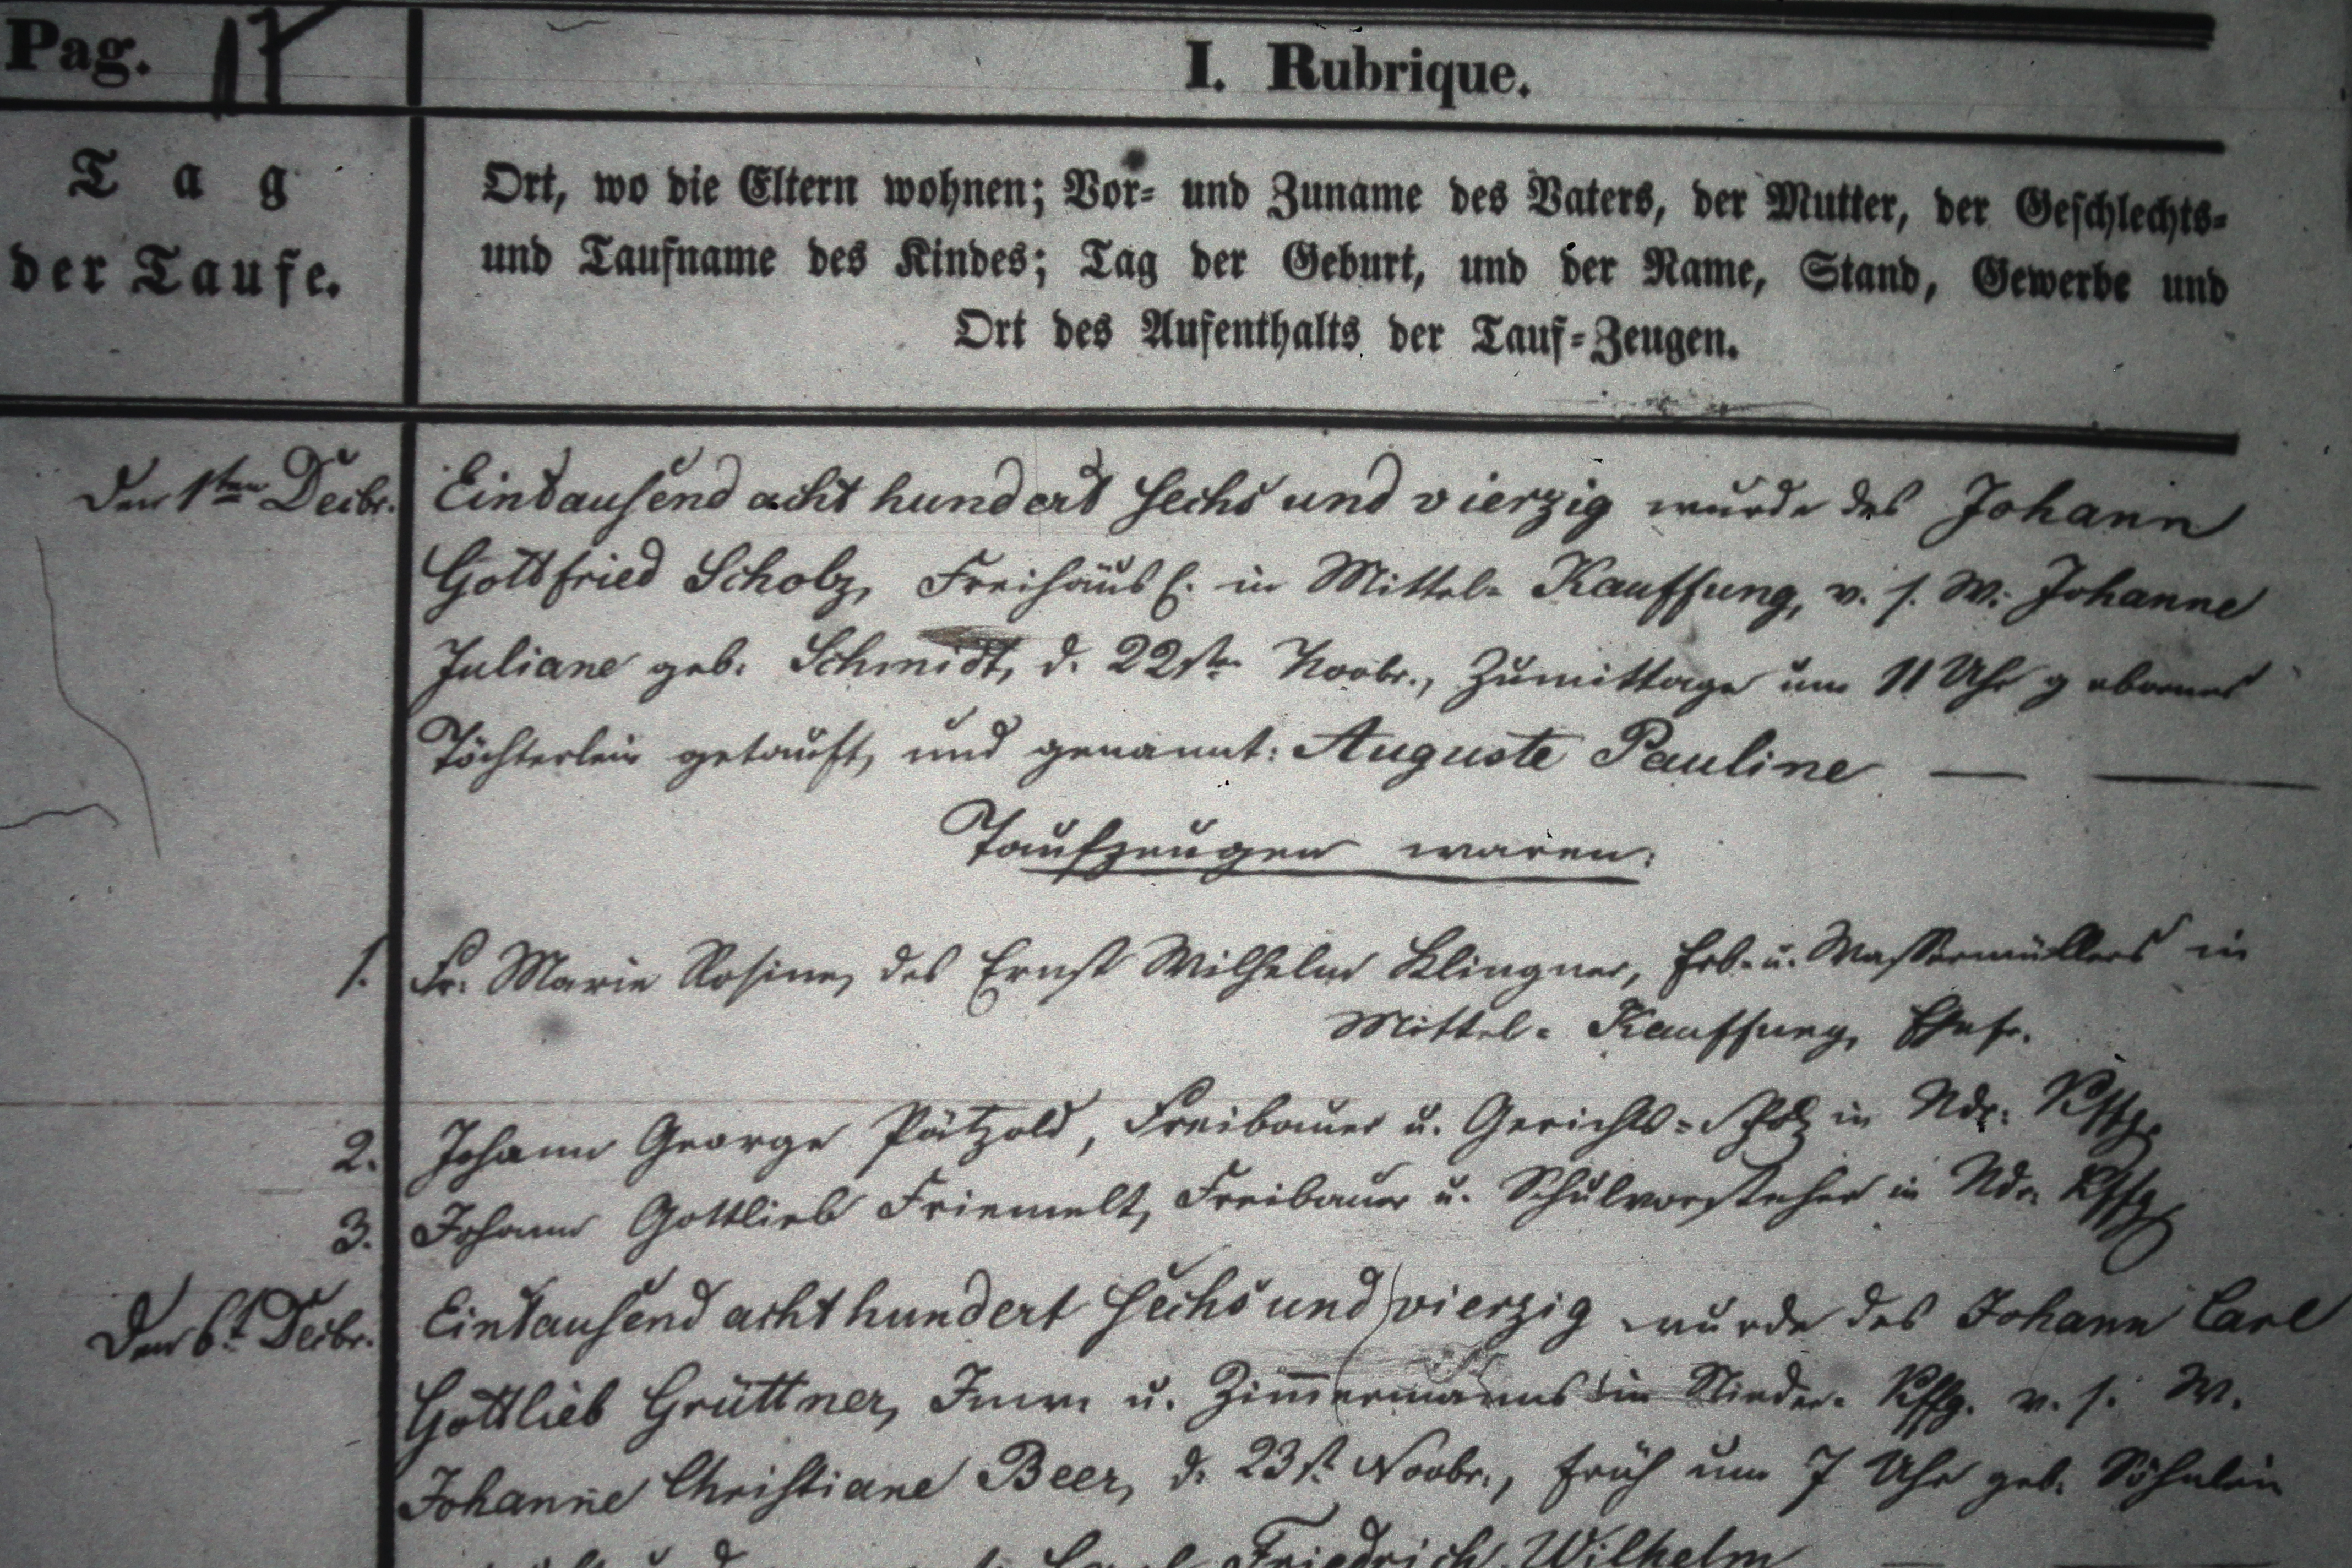 Pag. 17
I. Rubrique.
Tag
der Taufe.
Ort, wo die Eltern wohnen; Vor- und Zuname des Vaters, der Mutter, der Geschlechts-
und Taufname des Kindes; Tag der Geburt, und der Name, Stand, Gewerbe und
Ort des Aufenthalts der Tauf-Zeugen.
Den 1sten Decbr. Eintausend acht hundert sechs und vierzig wurde des Johann
Gottfried Scholz, Freihäusl. in Mittel- Kauffung, v. s. W. Johanne
Juliane geb. Schmidt, d. 22sten Novbr., Zumittage um 11 Uhr gebornes
Töchterlein getauft, und genannt: Auguste Pauline — —
Taufzeugen waren:
1. Fr. Marie Rosine, des Ernst Wilhelm Klingner, Erb- u. Wassermüllers in
Mittel- Kauffung, Ehefr.
2. Johann George Pätzold, Freibauer u. Gerichts- in Ndr. Kffg.
3. Johann Gottlieb Friemelt, Freibauer u. Schulvorsteher in Ndr. Kffg
Den 6t. Decbr. Eintausend acht hundert sechs und vierzig wurde des Johann Carl
Gottlieb Grüttner, Inw. u. Zimmermanns in Nieder- Kffg. v. s. W.
Johanne Christiane Beer, d. 23st. Novbr., früh um 7 Uhr geb. Söhnlein
Friedrich Wilhelm —